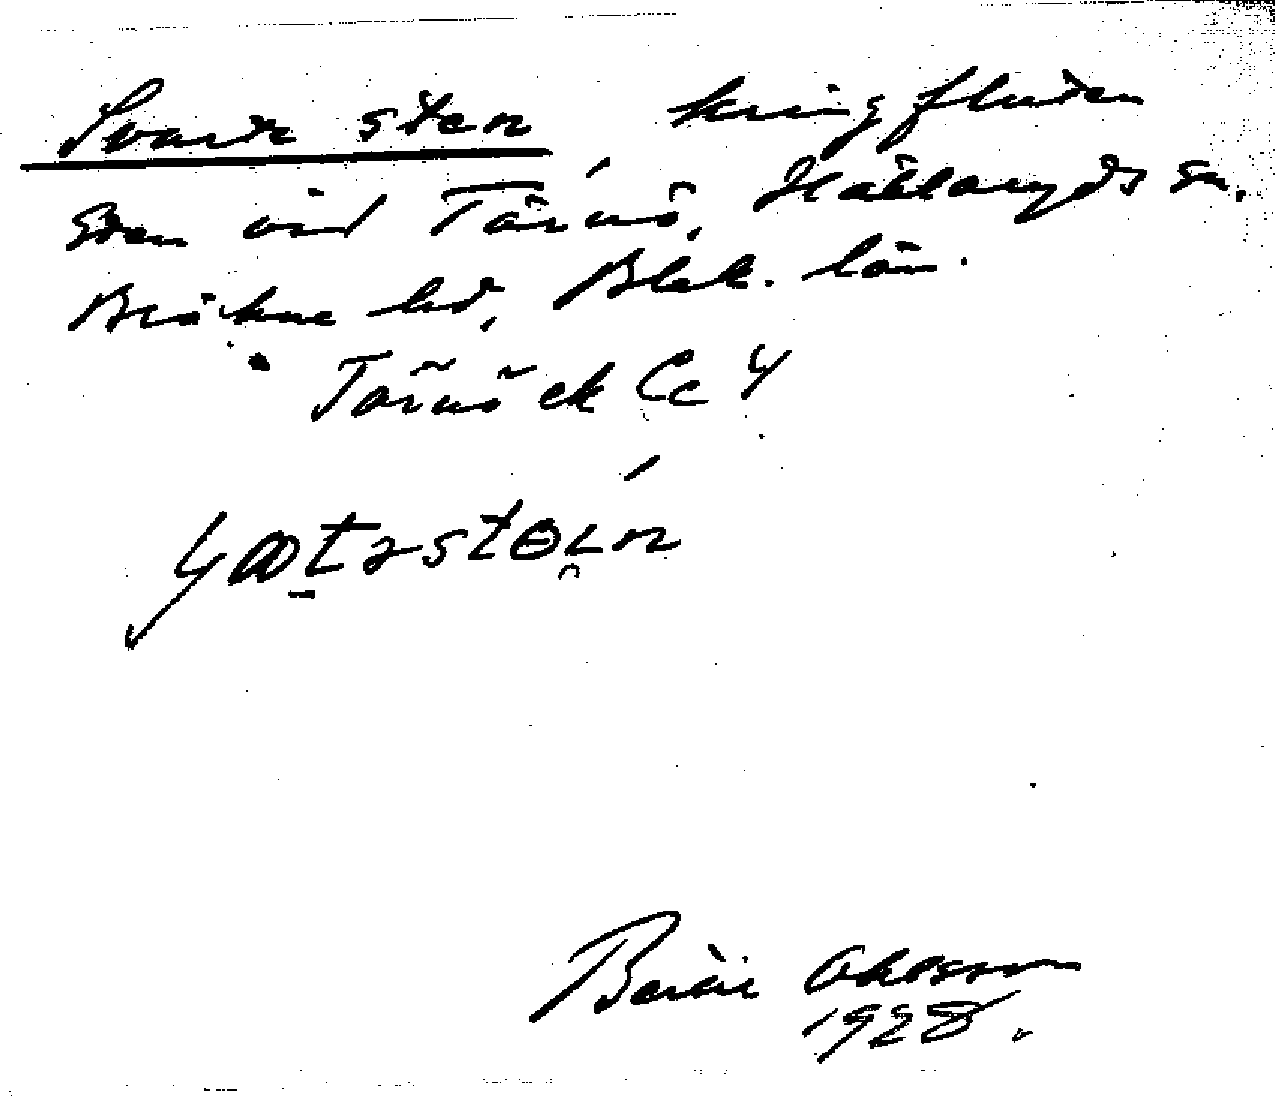 Svarte sten kringfluten
sten vid Tärnö, Hällaryds sn.
Bräkne hd, Blek. län.
Tärnö ek Cc 4
Ohlsson
1928.